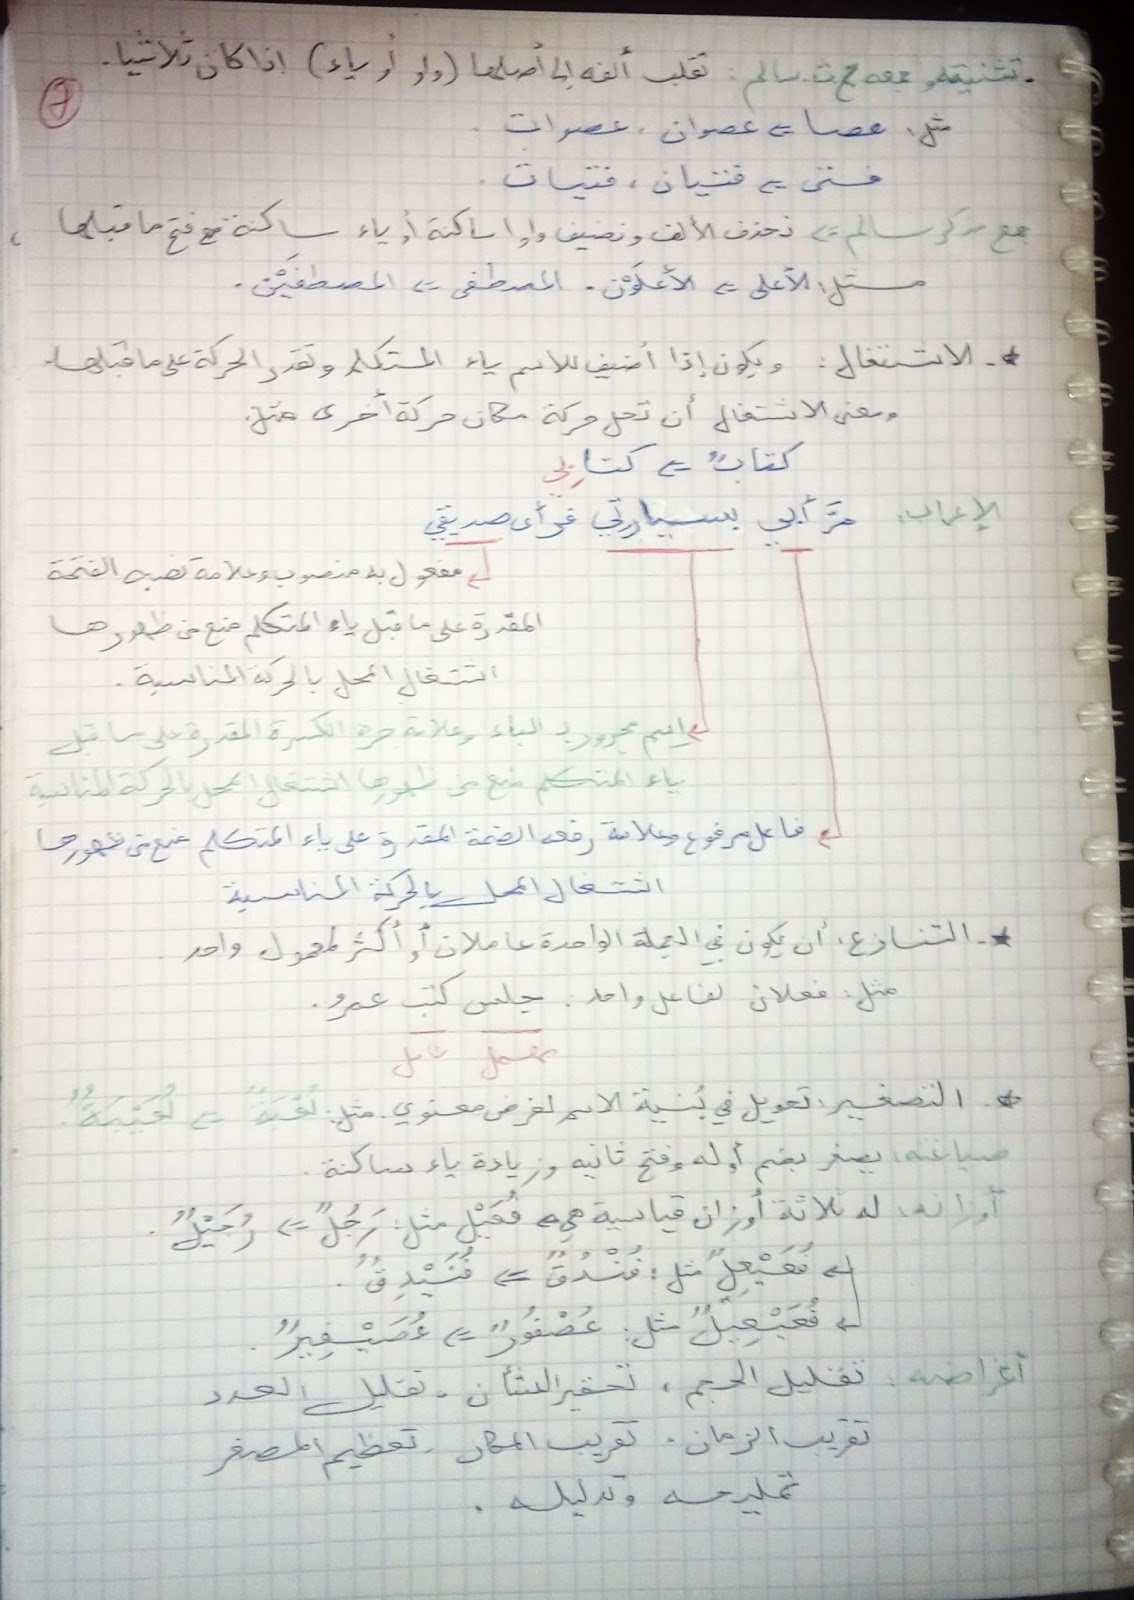 - تثنيته وجمعه ج م ث سالم : تقلب ألفه إلى أصلها (واو أو ياء) إذا كان ثلاثيا.
مثل: عصا ⇐ عصوان ، عصوات .
فتى ⇐ فتيان ، فتيات .
جمع مذكر سالم ⇐ تحذف الألف ونضيف واوا ساكنة أو ياء ساكنة مع فتح ما قبلها ،
مثل: الأعلى ⇐ الأعلَوْن . المصطفى ⇐ المصطفَيْن .
*- الاشتغال : ويكون إذا أضيف للاسم ياء المتكلم وتقدر الحركة على ما قبلها.
ومعنى الاشتغال أن تحل حركة مكان حركة أخرى مثل:
كتابٌ ⇐ كتابِي
الإعراب: مرَّ أبي بسيارتي فرأى صديقي
مفعول به منصوب وعلامة نصبه الفتحة
المقدرة على ما قبل ياء المتكلم منع من ظهورها
اشتغال المحل بالحركة المناسبة .
إسم مجرور بـ الباء وعلامة جره الكسرة المقدرة على ما قبل
ياء المتكلم منع من ظهورها اشتغال المحل بالحركة المناسبة
فاعل مرفوع وعلامة رفعه الضمة المقدرة على ياء المتكلم منع من ظهورها
اشتغال المحل بالحركة المناسبة
*- التنازع: أن يكون في الجملة الواحدة عاملان أو أكثر لمعمول واحد .
مثل: فعلان لفاعل واحد : جلس كتب عمرو .
*- التصغير: تحويل في بُنية الاسم لغرض معنوي . مثل: لُعْبَةٌ ⇐ لُعَيْبَةٌ.
صياغته: يصغر بضم أوله وفتح ثانيه وزيادة ياء ساكنة .
أوزانه: له ثلاثة أوزان قياسية هي: فُعَيْل مثل: رَجُلٌ ⇐ رُجَيْلٌ .
فُعَيْعِلٌ مثل: فُنْدُقٌ ⇐ فُنَيْدِقٌ .
فُعَيْعِيلٌ مثل: عُصْفُورٌ ⇐ عُصَيْفِيرٌ .
أغراضه: تقليل الحجم ، تحقير الشأن . تقليل العدد
تقريب الزمان . تقريب المكان . تعظيم المصغر
تمليحه وتدليله .